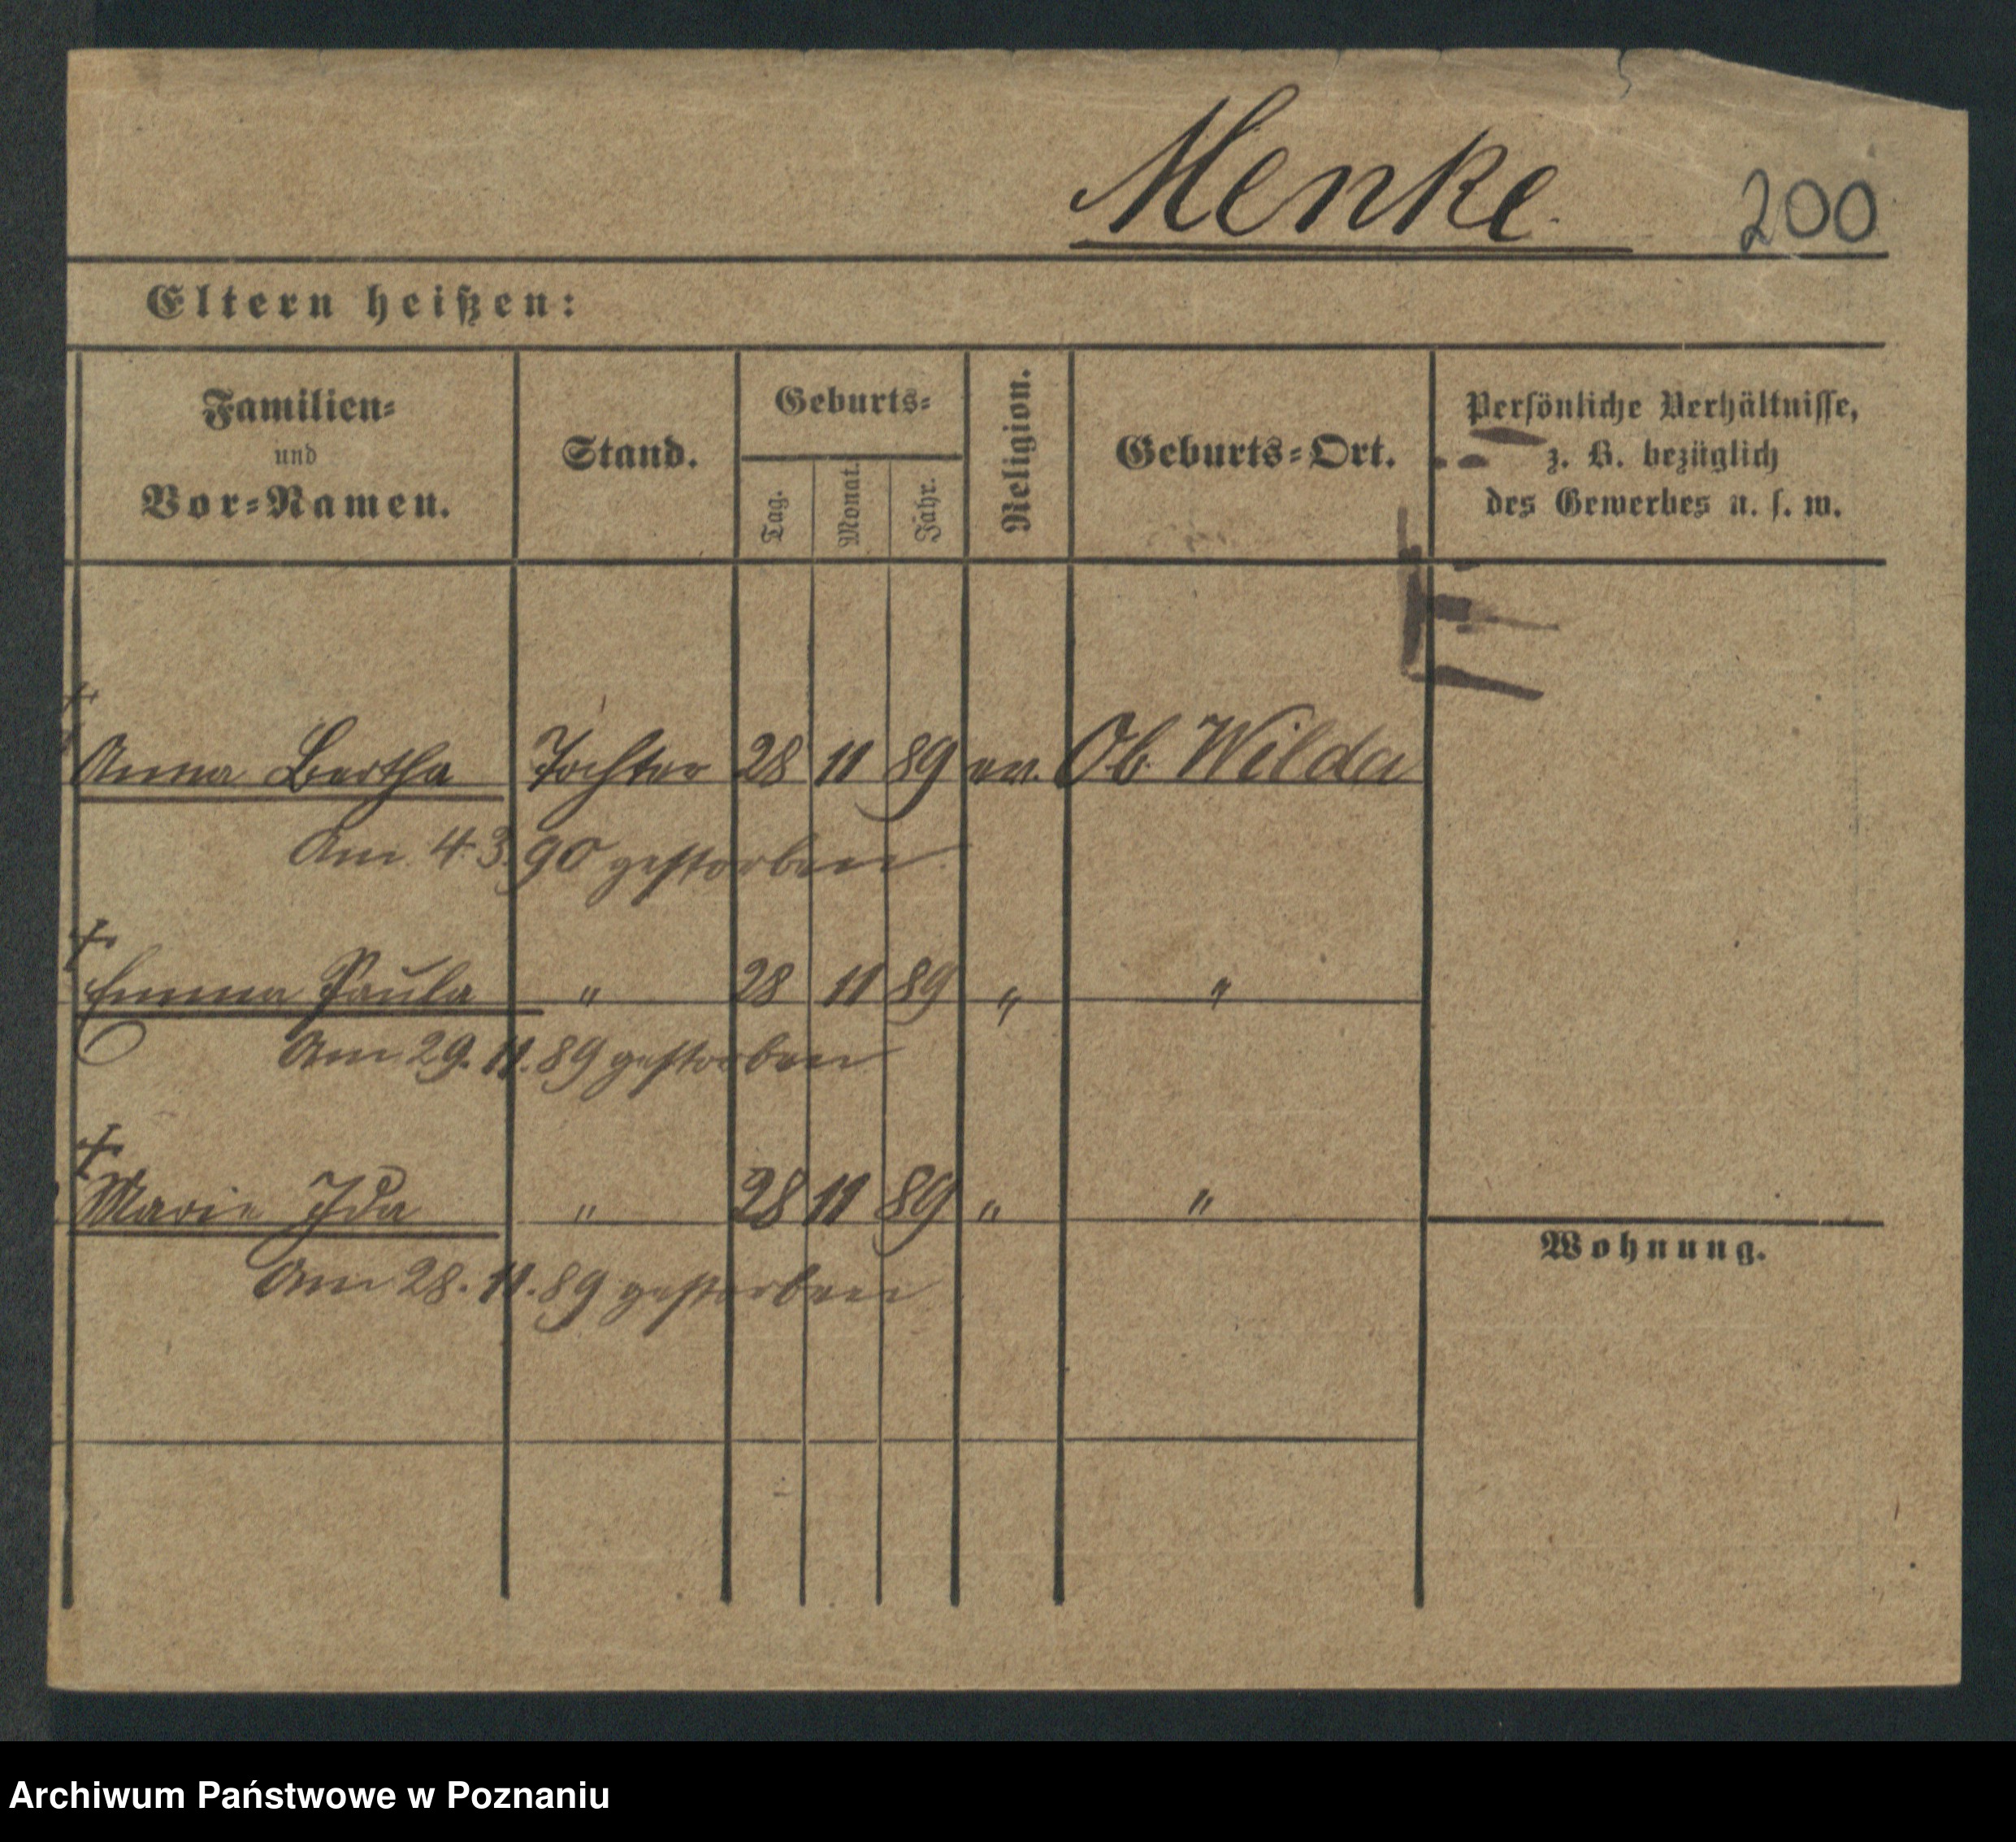 Menke 200
Eltern heißen:
Familien-
und
Vor-Namen.
Stand.
Geburts-
Tag.
Monat.
Jahr.
Religion.
Geburts-Ort.
Persönliche Verhältnisse,
z. B. bezüglich
des Gewerbes u. s. w.
Anna Bertha Tochter 28 11 89 ev. Ob. Wilda
Am 4.3.90 gestorben
Emma Paula " 28 11 89 " "
Am 29.11.89 gestorben
Marie Ida " 28 11 89 " "
Am 28.11.89 gestorben
Wohnung.
Archiwum Państwowe w Poznaniu